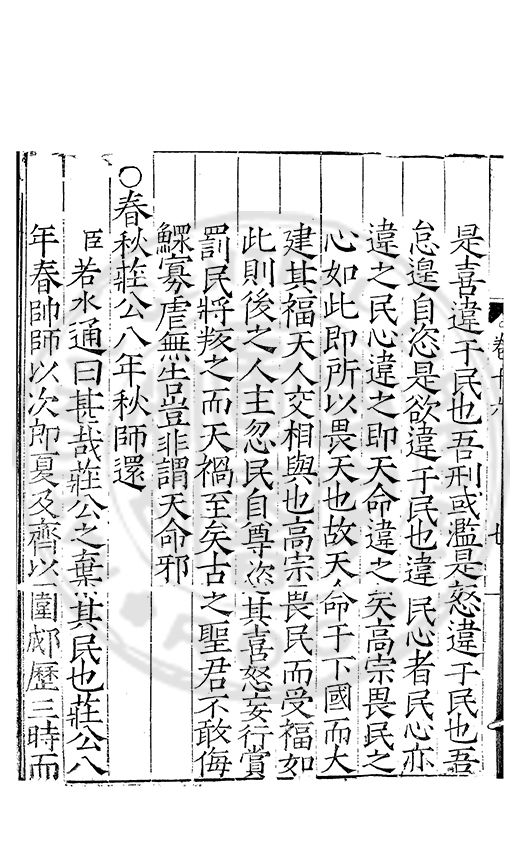 是喜違于民也吾刑或濫是怒違于民也吾
怠遑自恣是欲違于民也違民心者民心亦
違之民心違之即天命違之矣高宗畏民之
心如此即所以畏天也故天命于下國而大
建其福天人交相與也高宗畏民而受福如
此則後之人主忽民自尊恣其喜怒妄行賞
罰民將殘之而天禍至矣古之聖君不敢侮
鰥寡虐無告豈非謂天命邪
○春秋莊公八年秋師還
臣若水通曰甚哉莊公之棄其民也莊公八
年春帥師以次郎夏及齊以圍郕歷三時而